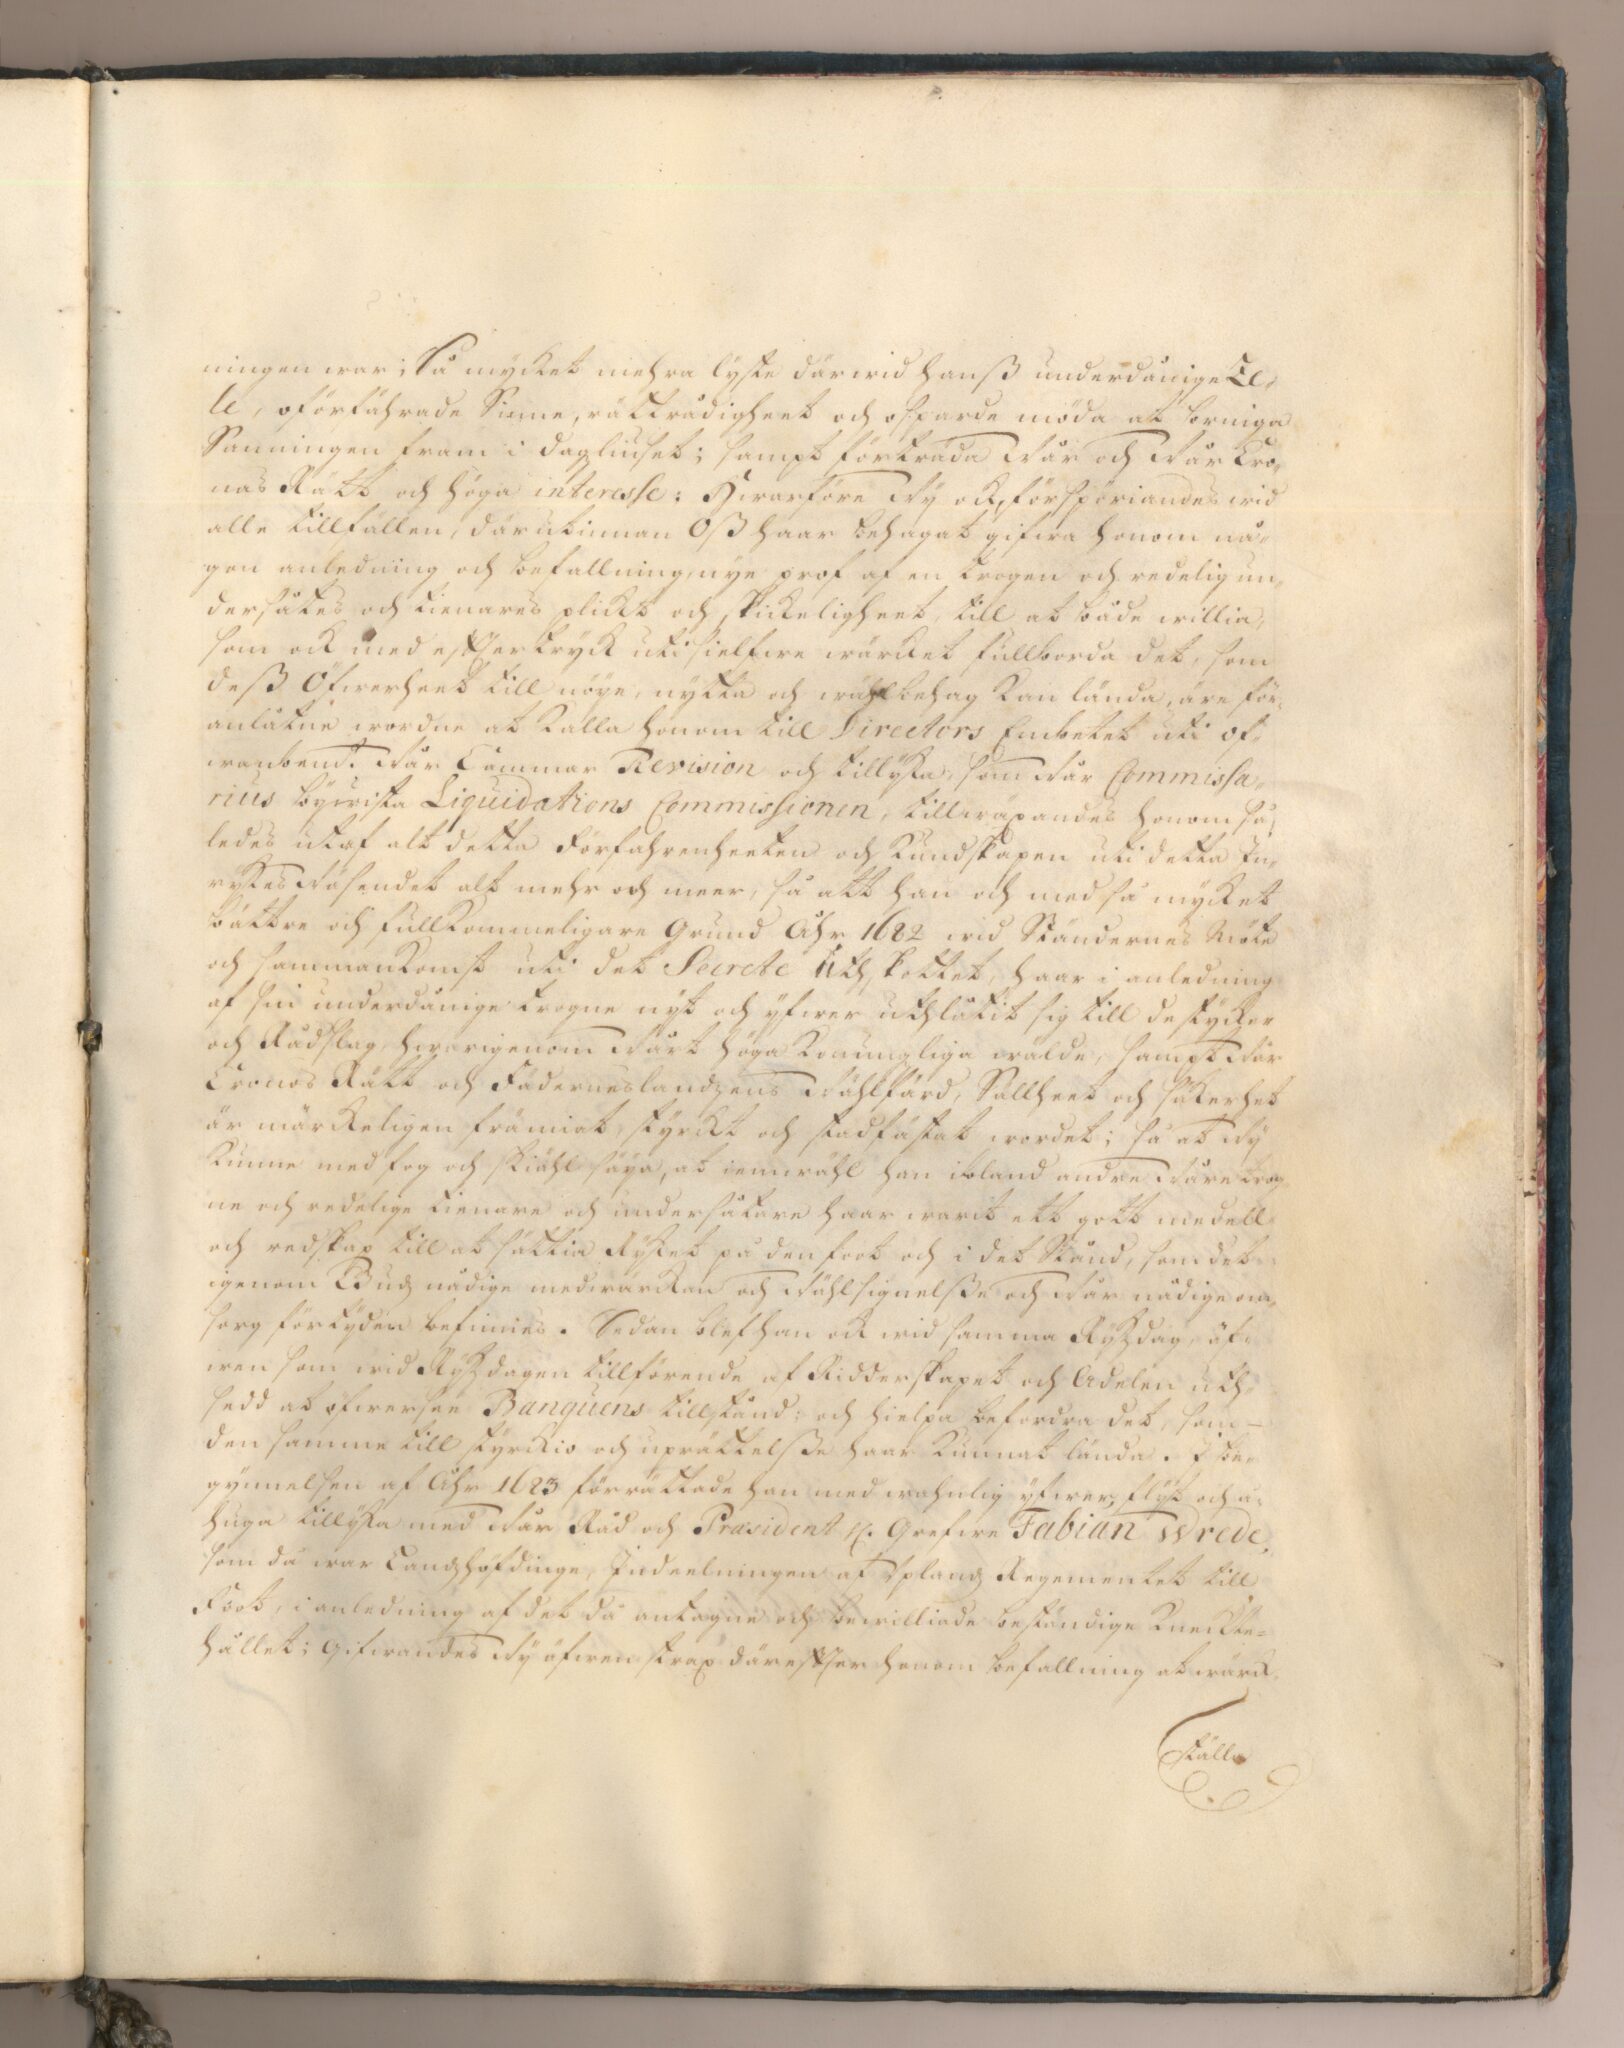 ningen war; Så mycket mehra lyste därwid hanß underdånige Ze-
le, oförfährade Sinne, rättrådigheet och osparde möda at bringa
Sanningen fram i dagliuset; sampt förträda Wår och Wår Cro-
nas Rätt och höga interesse: Hwarföre Wy ock, förspöriandes wid
alle tillfällen, därutinnan Oß haar behagat gifwa honom nå-
gon anledning och befallning, nye prof af en trogen och redelig un-
dersåtes och tienares plicht och skickeligheet, till at både willia,
som ock med efftertryck uti sielfwe wärcket fullborda det, som
deß Öfwerheet till nöye, nytta och wählbehag kan lända, äre för-
anlåtne wordne at kalla honom till Directors Embetet uti of-
wanbend:e Wår Cammar Revision och tillijka, som Wår Commissa-
rius bijwista Liquidations Commissionen, tillwäxandes honom så-
ledes utaf alt detta Förfahrenheeten och Kundskapen uti detta In-
rykes Wäsendet alt mehr och meer, så att han och med så mycket
bättre och fullkommeligare Grund Åhr 1682 wid Ständernes Möte
och sammankomst uti det Secrete Uthskottet, haar i anledning
af sin underdånige trogne nyt och yfwer uthlåtit sig till de stycker
och Rådslag, hwarigenom Wårt höga Konungliga wälde, sampt Wår
Cronos Rätt och Fäderneslandzens Wählfärd, Sällheet och säkerhet
är märckeligen främiat, styrckt och stadfästat wordet; så at Wy
kunne med fog och skiähl säya, at iemwähl han ibland andre Wåre trog-
ne och redelige tienare och undersåtare haar warit ett gott medell
och redskap till at sättia Ryket på den foot och i det Stånd, som det
igenom Gudz nådige medwärckan och Wählsignelsse och Wår nådige om-
sorg förtyden befinnes. Sedan blef han ock wid samma Rykzdag, äf-
wen som wid Rykzdagen tillförende af Ridderskapet och Adelen uth-
sedd at öfwersee Banquens tillstånd: och hielpa befordra det, som
den samme till styrckio och uprättelsse haar kunnat lända. I be-
gynnelsen af Åhr 1683 förrättade han med wahnlig yfwer, flijt och å-
huga tillijka med Wår Råd och Præsident H. Grefwe Fabian Wrede,
som då war Landzhöfdinge, Indeelningen af Upland Regementet till
Foot, i anledning af det då antagne och bewilliade beständige Kneckte-
hållet; Gifwandes Wy äfwen strax därefter honom befallning at wärck-
ställa